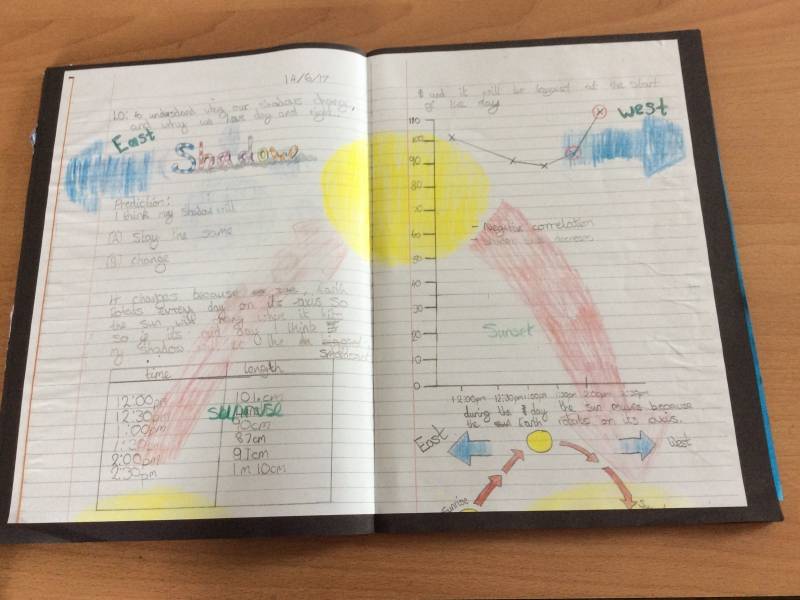 14/6/17
LO: to understand why our shadows change,
and why we have day and night.
East
Shadow
Prediction:
I think my shadow will
(A) Stay the same
(B) change
It changes because Earth
every day on its axis so
the sun will where it
so if its mid day I think
my shadow
time length
12:00pm 104cm
12:30pm
sunrise
1:00pm 90cm
87cm
2:00pm 91cm
2:30pm 1m 10cm
and it will be longest at the start
of the day
West
110
100
90
80
70
60
50
40
30
20
10
0
- Negative correlation
Sunset
12:00pm 12:30pm 1:00pm 1:30pm 2:00pm 2:30pm
during the day the sun moves because
the Earth rotates on its axis.
East West
Sunrise